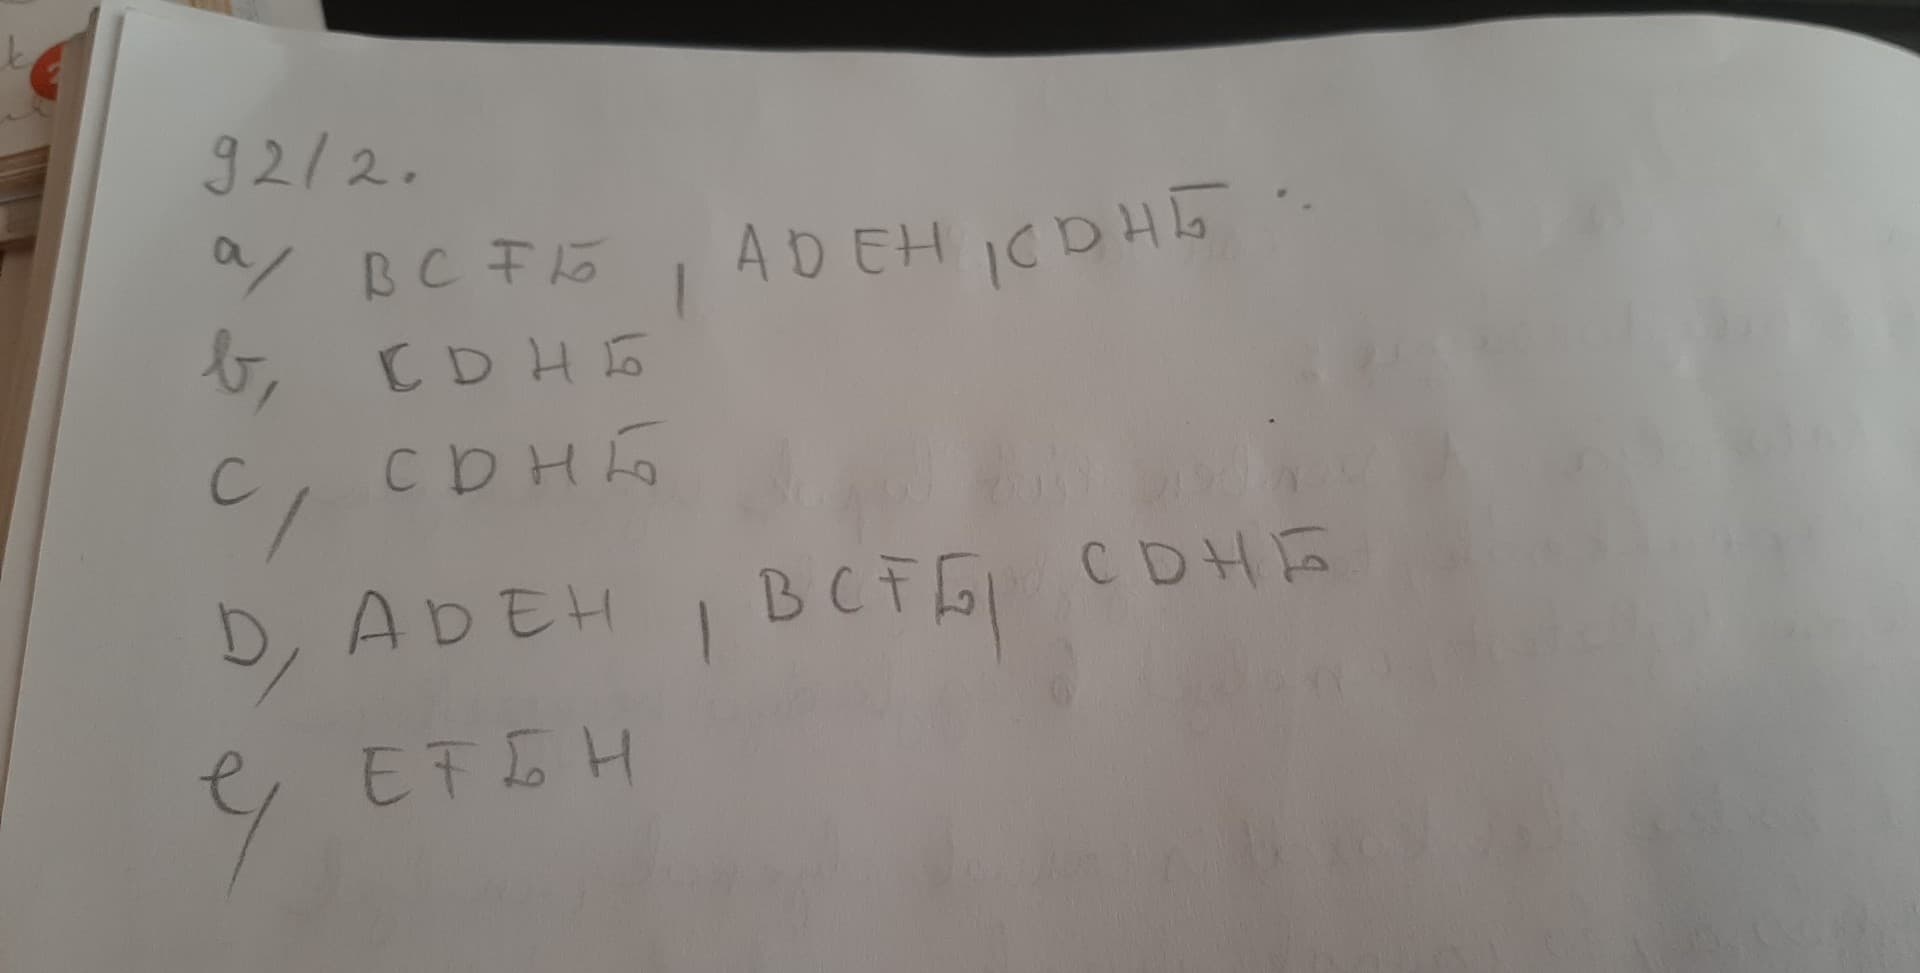 92/2.
a, BCFG, ADEH, CDHG
b, CDHG
c, CDHG
D, ADEH, BCFG, CDHG
e, EFGH